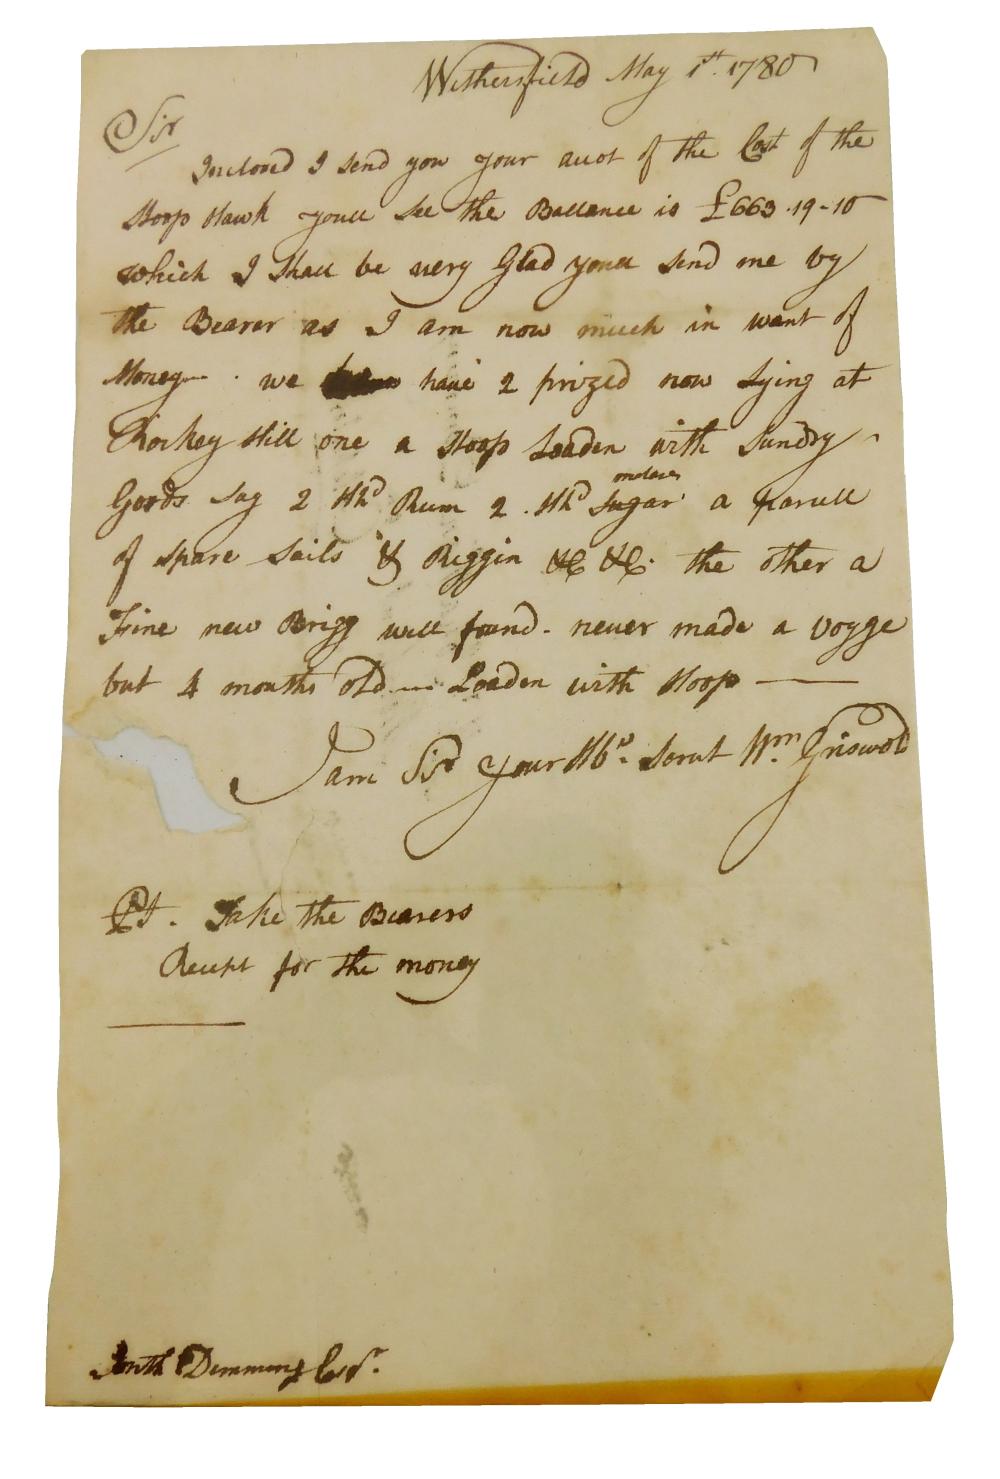 Withersfield May 1st. 1780
Sir
Inclosed I send you your accot of the Cost of the
Sloop Hawk youll see the Ballance is £663.19-10
which I Shall be very Glad youll send me by
the Bearer as I am now much in want of
Money - we have 2 prized now Lying at
Rockey Hill one a Sloop Loaden with Sundry
Goods Say 2 Hhd Rum 2 Hhd Sugar a parcell
of Spare Sails & Riggin &C &C. the other a
Fine new Brigg well found - never made a voyge
but 4 months old - Loaden with Hoop
I am Sir your Hbe. Servt Wm. Griswold
PS. Take the Bearers
Receipt for the money
Demming Esqr.